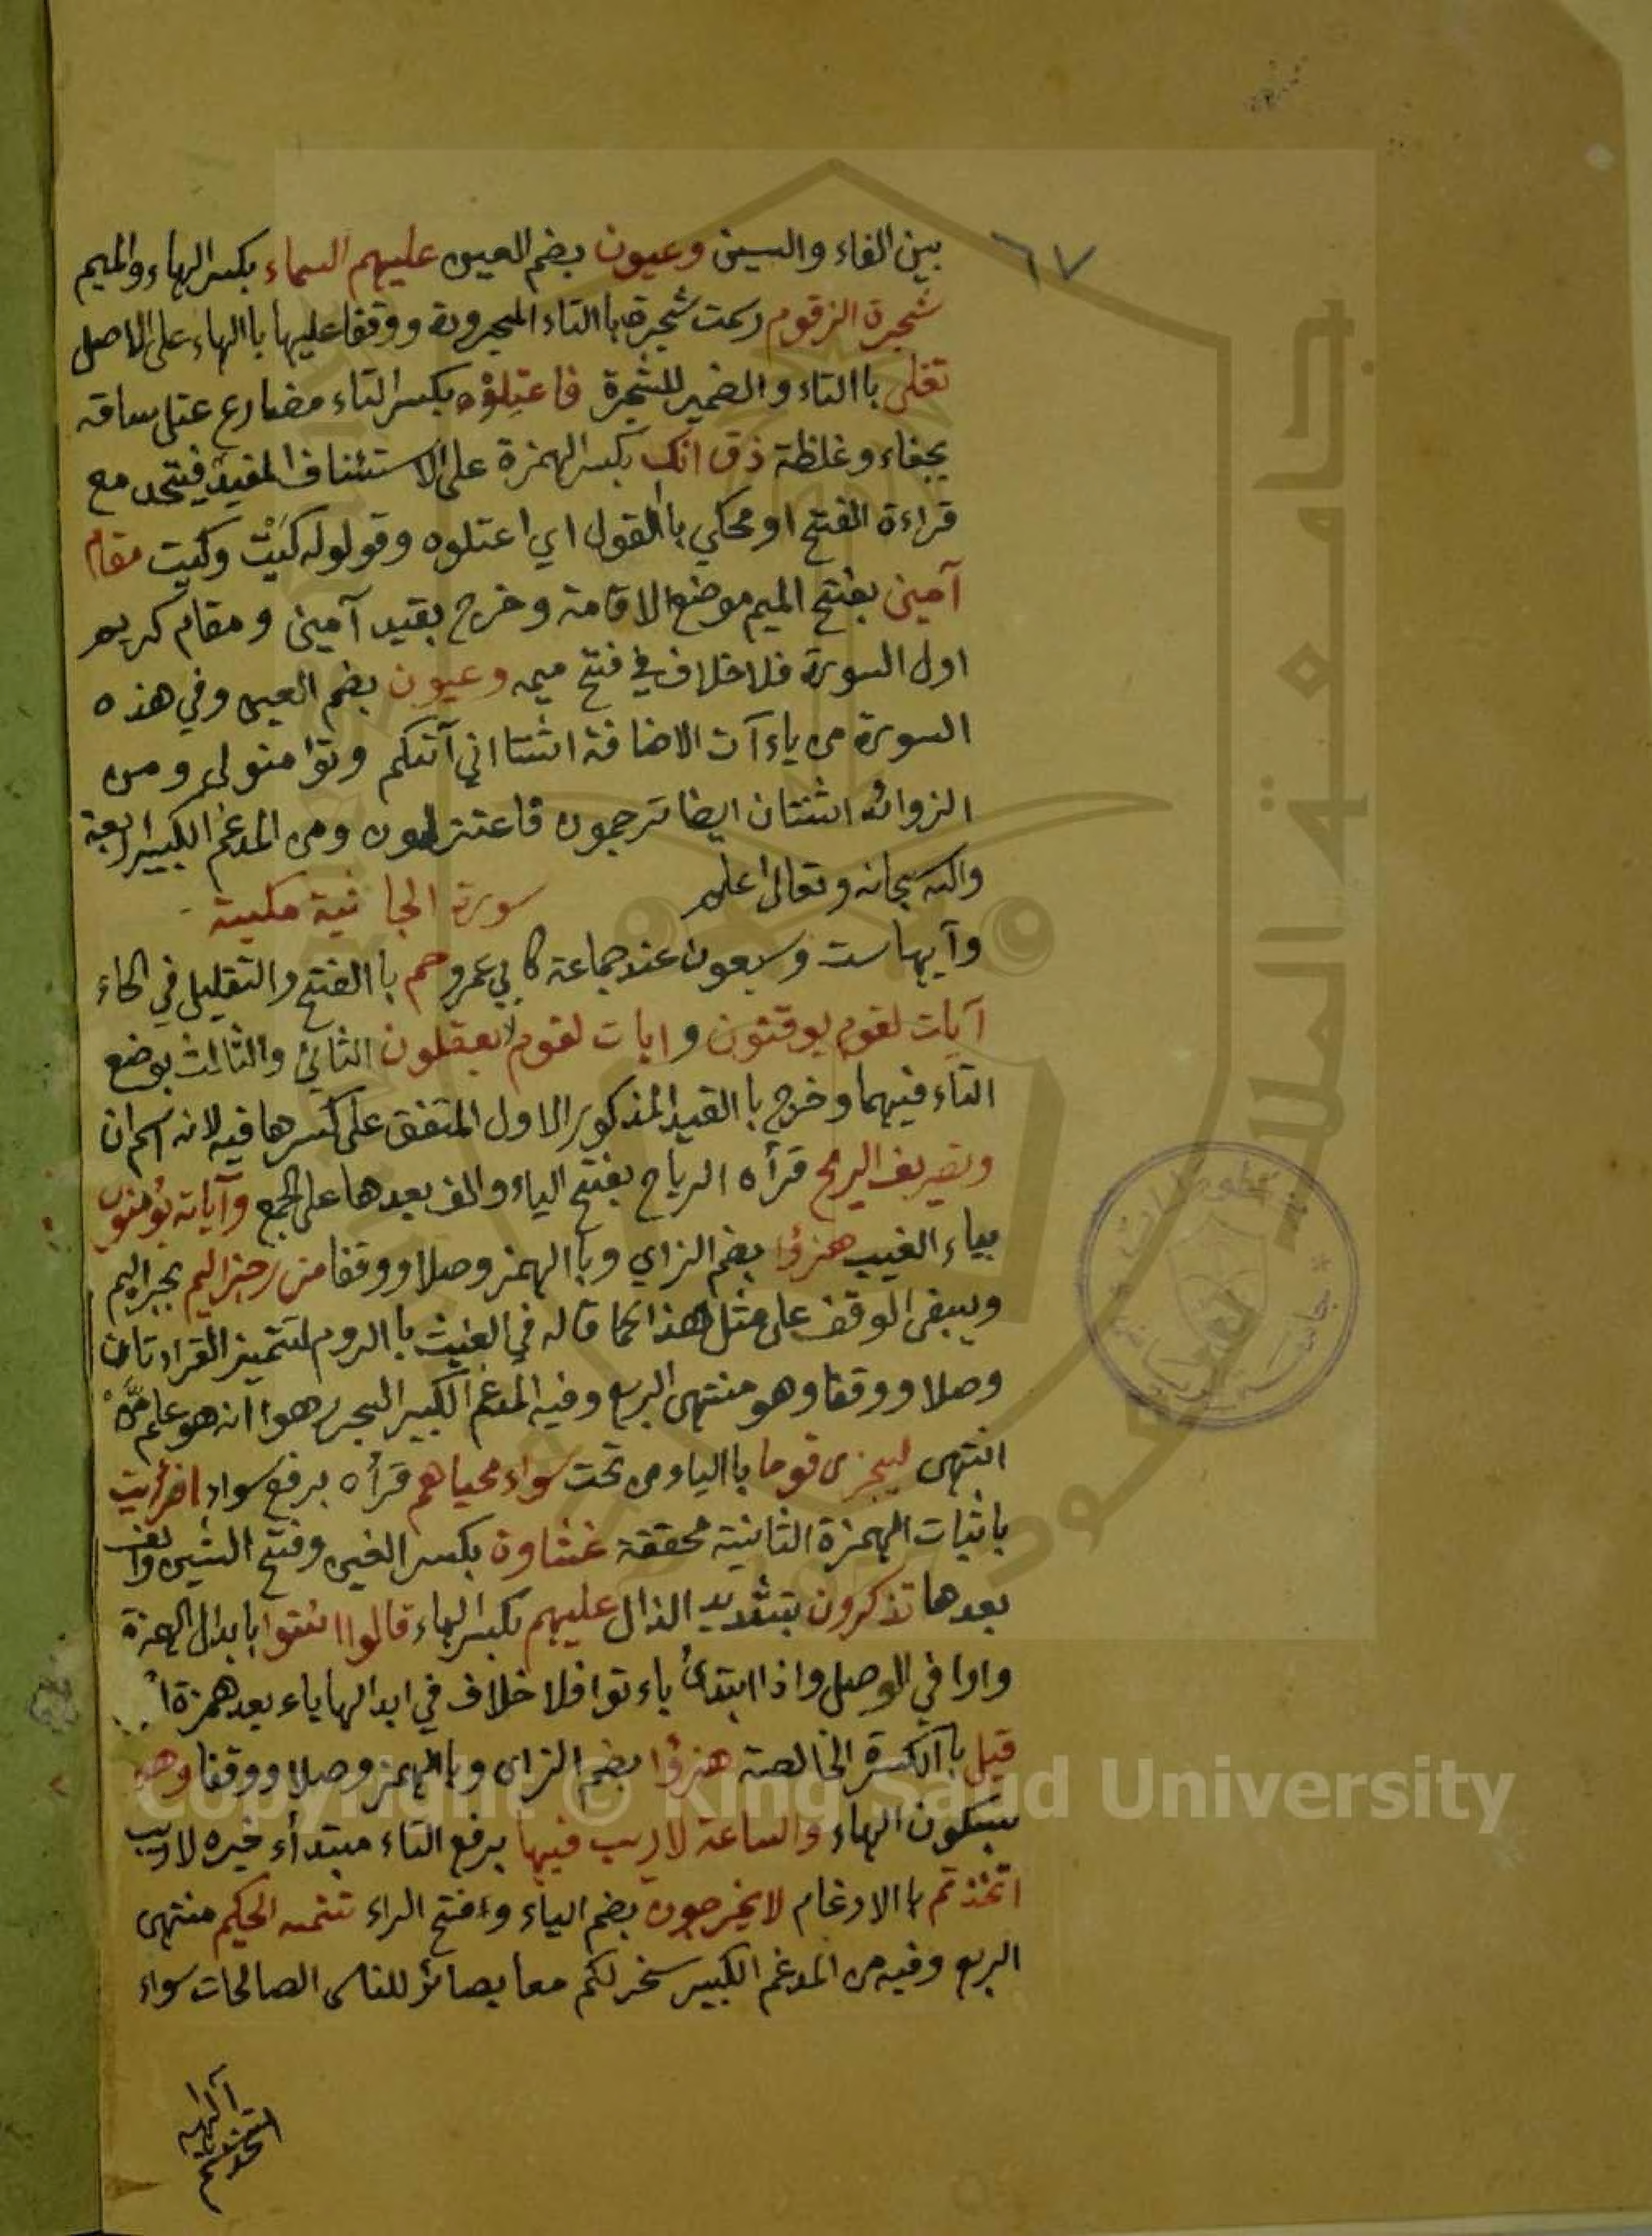 ٦٧
بين الفاء والسين وعيون بضم العين عليهم السماء بكسر الهاء والميم
شجرة الزقوم رسمت شجرت باالتاء المجرورة ووقفا عليها باالهاء على الاصل
تغلى باالتاء والضمير للشجرة فاعتِلوْه بكسر التاء مضارع عتل ساقه
بجفاء وغلظة ذق انك بكسر الهمزة على الاستئناف المفيد فيتحد مع
قراءة الفتح او محكي باالقول اي اعتلوه وقولوله كَيْتَ وكيت مقام
آمين بفتح الميم موضع الاقامة وخرج بقيد آمين ومقام كريم
اول السورة فلا خلاف في فتح ميمه وعيون بضم العين وفي هذه
السورة من ياءآت الاضافة اثنتا اني آتيكم وتؤامنو لي ومن
الزوائد اثنتان ايضا ترجمون فاعتزلون ومن المدغم الكبير اربعة
والله سبحانه وتعالى اعلم سورة الجاثية مكية
وآيها ست وسبعون عند جماعة كابي عمرو حم باالفتح والتقليل في الحاء
آيات لقوم يوقنون وايات لقوم يعقلون الثاني والثالث بوضع
التاء فيهما وخرج باالقيد المذكور الاول المتفق على كسرها فيه لانه اسم ان
وتصريف الريح قرأه الرياح بفتح الياء والف بعدها على الجمع وآياته يؤمنون
بياء الغيب هزؤا بضم الزاي وباالهمز وصلا ووقفا من رجز اليم بجر اليم
ويبقى الوقف على مثل هذا كما قاله في الغيث باالروم لتتميز القراءتان
وصلا ووقفا وهو منتهى الربع وفيه المدغم الكبير البحر هوا انه هو علم مّن
انتهى ليجزى قوما باالياء من تحت سواء محياهم قرأه برفع سواء افرأيت
باثبات الهمزة الثانية محققة غشاوة بكسر الغين وفتح الشين والف
بعدها تذكرون بتشديد الذال عليهم بكسر الهاء قالوا ائتوا بابدال الهمزة
واوا في الوصل واذا ابتدئ باءتوا فلا خلاف في ابدالها ياء بعد همزة
قيل باالكسرة الخالصة هزؤا بضم الزاى وباالهمز وصلا ووقفا وهو
بسكون الهاء والساعة لا ريب فيها برفع التاء مبتدأء خبره لا ريب
اتخذتم باالادغام لا يخرجون بضم الياء وفتح الراء تتمه الحكيم منتهى
الربع وفيه من المدغم الكبير سخر لكم معا بصائر للناس الصالحات سواء
جامعة الملك سعود
Copyright © King Saud University